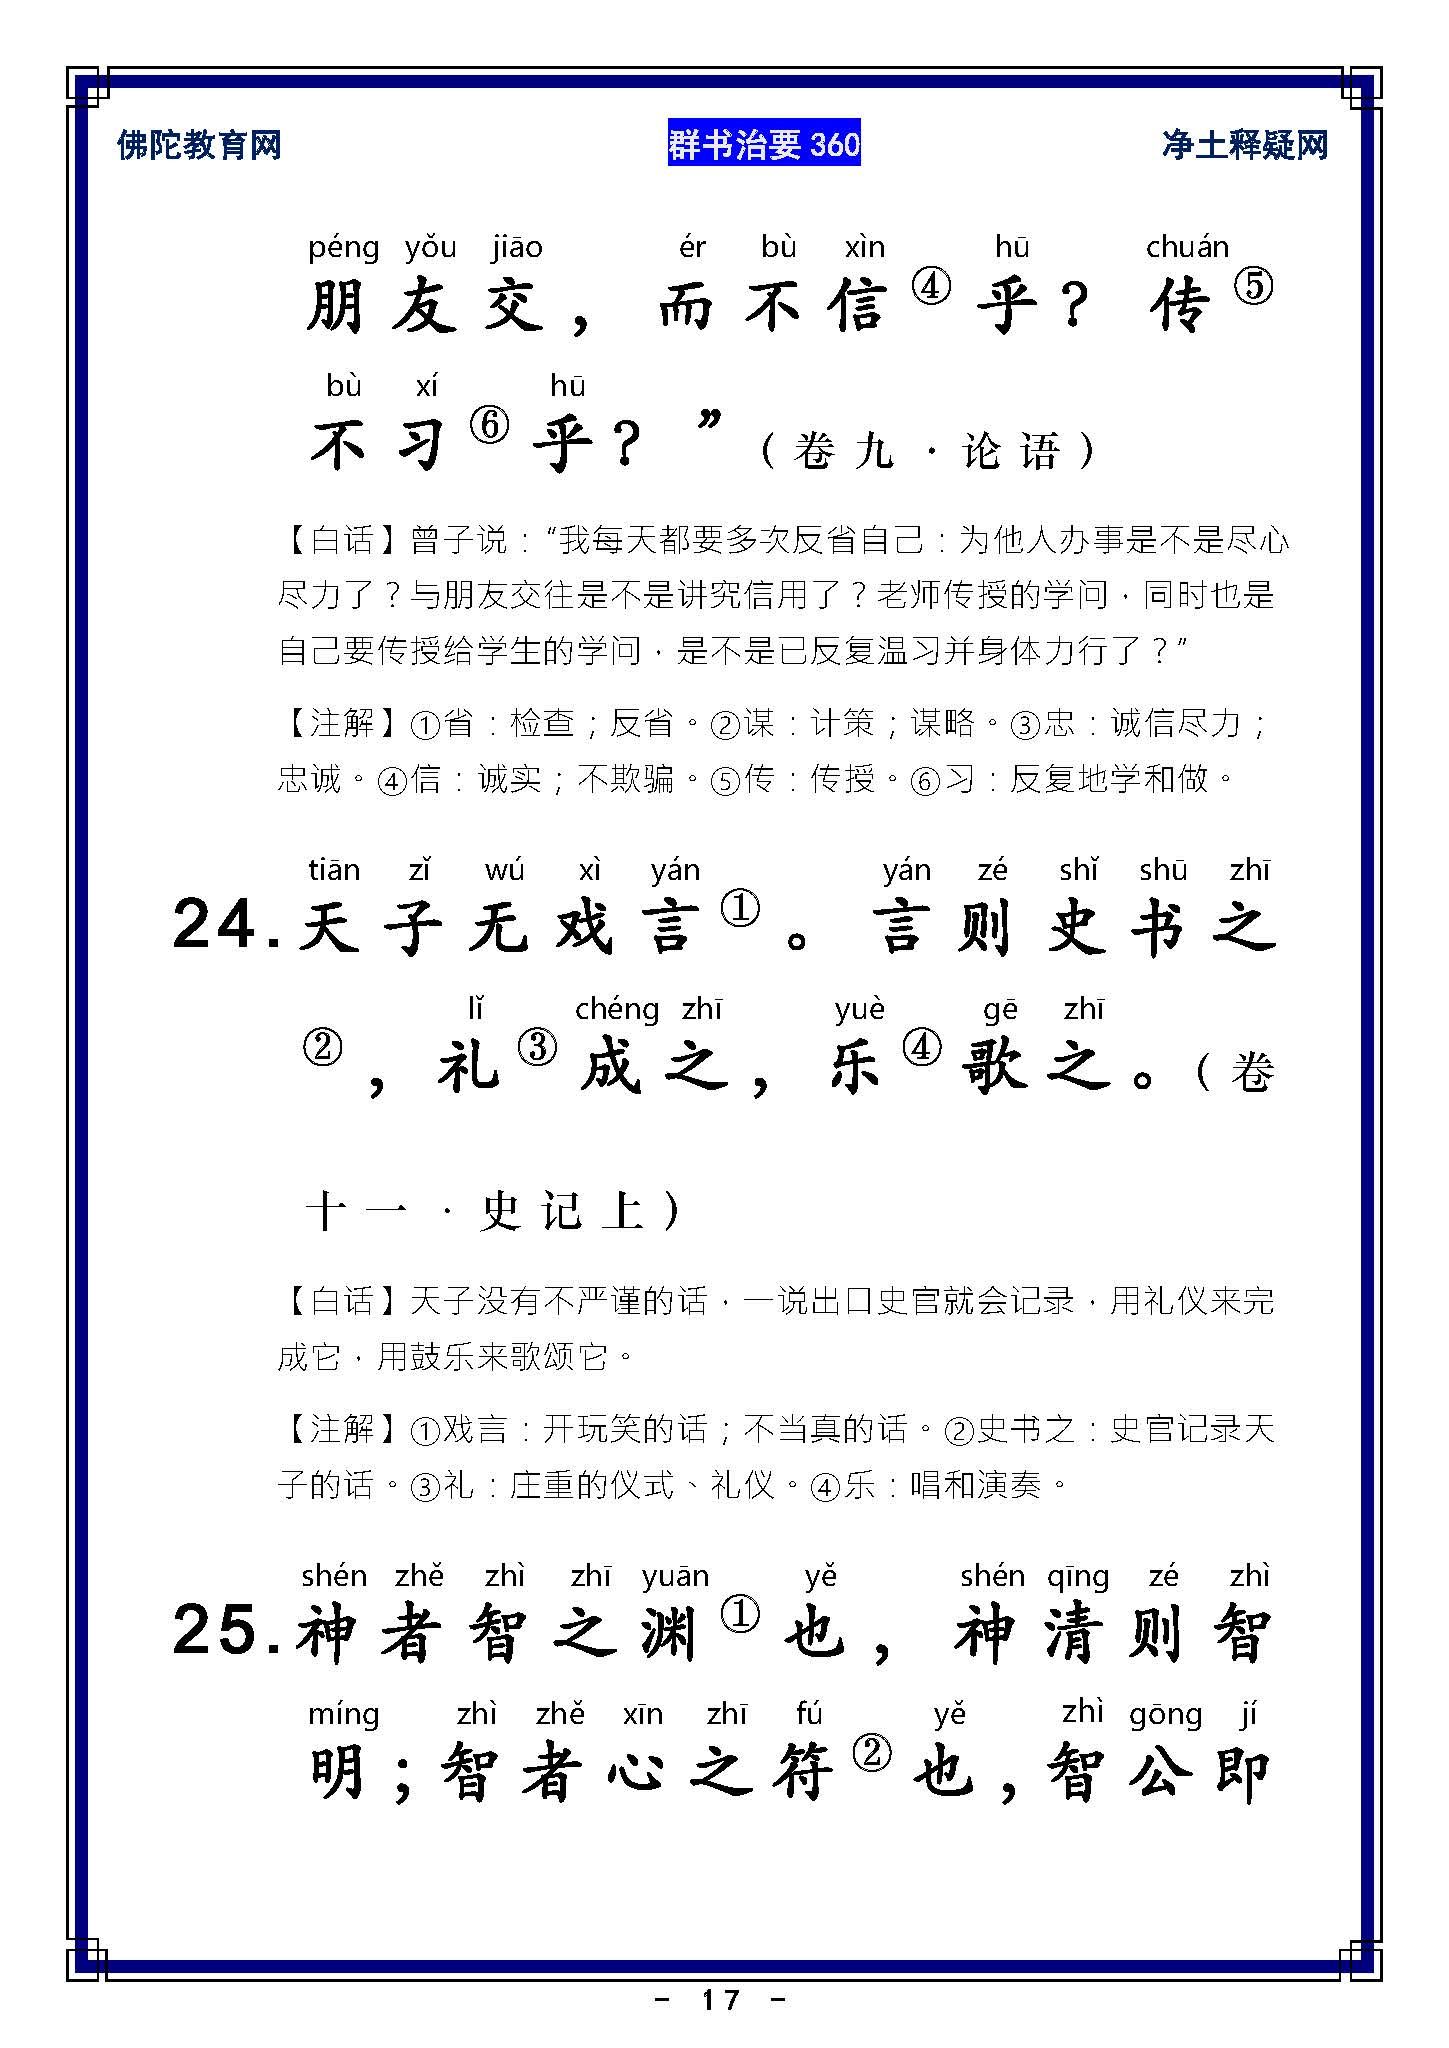 佛陀教育网 群书治要 360 净土释疑网
péng yǒu jiāo ér bù xìn hū chuán
朋友交，而不信④乎？传⑤
bù xí hū
不习⑥乎？”（卷九·论语）
【白话】曾子说：“我每天都要多次反省自己：为他人办事是不是尽心
尽力了？与朋友交往是不是讲究信用了？老师传授的学问，同时也是
自己要传授给学生的学问，是不是已反复温习并身体力行了？”
【注解】①省：检查；反省。②谋：计策；谋略。③忠：诚信尽力；
忠诚。④信：诚实；不欺骗。⑤传：传授。⑥习：反复地学和做。
tiān zǐ wú xì yán yán zé shǐ shū zhī
24.天子无戏言①。言则史书之
lǐ chéng zhī yuè gē zhī
②，礼③成之，乐④歌之。（卷
十一·史记上）
【白话】天子没有不严谨的话，一说出口史官就会记录，用礼仪来完
成它，用鼓乐来歌颂它。
【注解】①戏言：开玩笑的话；不当真的话。②史书之：史官记录天
子的话。③礼：庄重的仪式、礼仪。④乐：唱和演奏。
shén zhě zhì zhī yuān yě shén qīng zé zhì
25.神者智之渊①也，神清则智
míng zhì zhě xīn zhī fú yě zhì gōng jí
明；智者心之符②也，智公即
- 17 -